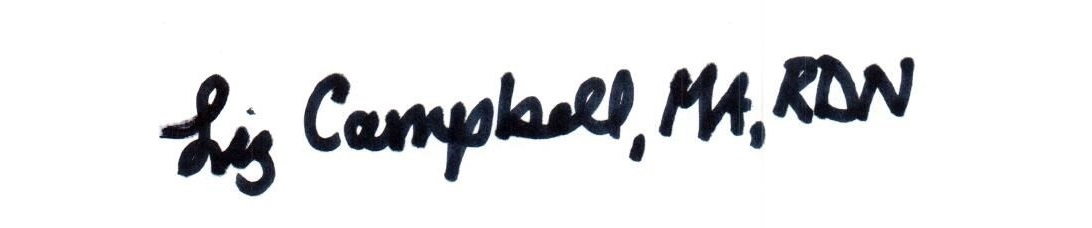 Liz Campbell, MA, RDN